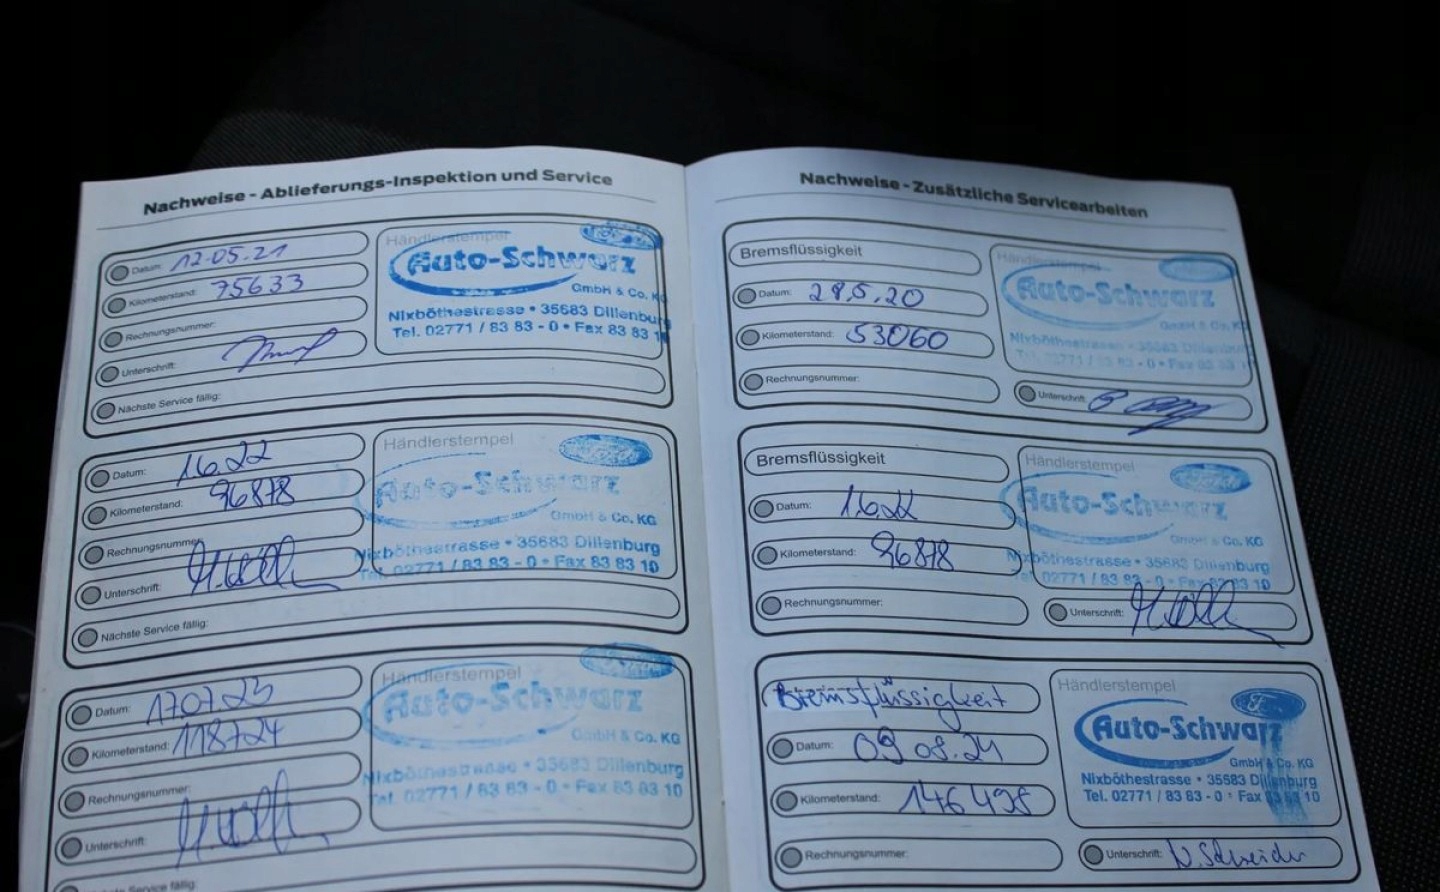 Nachweise - Ablieferungs-Inspektion und Service
Datum: 12.05.21
Kilometerstand: 75633
Rechnungsnummer:
Unterschrift:
Nächste Service fällig:
Händlerstempel
Ford
Auto-Schwarz
GmbH & Co. KG
Nixböthestrasse • 35683 Dillenburg
Tel. 02771 / 83 83 - 0 • Fax 83 83 10
Datum: 1.6.22
Kilometerstand: 96878
Rechnungsnummer:
Unterschrift:
Nächste Service fällig:
Händlerstempel
Ford
Auto-Schwarz
GmbH & Co. KG
Nixböthestrasse • 35683 Dillenburg
Tel. 02771 / 83 83 - 0 • Fax 83 83 10
Datum: 17.07.23
Kilometerstand: 118724
Rechnungsnummer:
Unterschrift:
Nächste Service fällig:
Händlerstempel
Auto-Schwarz
GmbH & Co. KG
Nixböthestrasse • 35683 Dillenburg
Tel. 02771 / 83 83 - 0 • Fax 83 83 10
Nachweise - Zusätzliche Servicearbeiten
Bremsflüssigkeit
Datum: 28.5.20
Kilometerstand: 53060
Rechnungsnummer:
Händlerstempel
Auto-Schwarz
GmbH & Co. KG
Nixböthestrassen • 35683 Dillenburg
Tel. 02771 / 83 83 - 0 • Fax 83 83 10
Unterschrift:
Bremsflüssigkeit
Datum: 1.6.22
Kilometerstand: 96878
Rechnungsnummer:
Händlerstempel
Ford
Auto-Schwarz
GmbH & Co. KG
Nixböthestrasse • 35683 Dillenburg
Tel. 02771 / 83 83 - 0 • Fax 83 83 10
Unterschrift:
Bremsflüssigkeit
Datum: 09.08.24
Kilometerstand: 146498
Rechnungsnummer:
Händlerstempel
Ford
Auto-Schwarz
GmbH & Co. KG
Nixböthestrasse • 35683 Dillenburg
Tel. 02771 / 83 83 - 0 • Fax 83 83 10
Unterschrift: N. Schneider